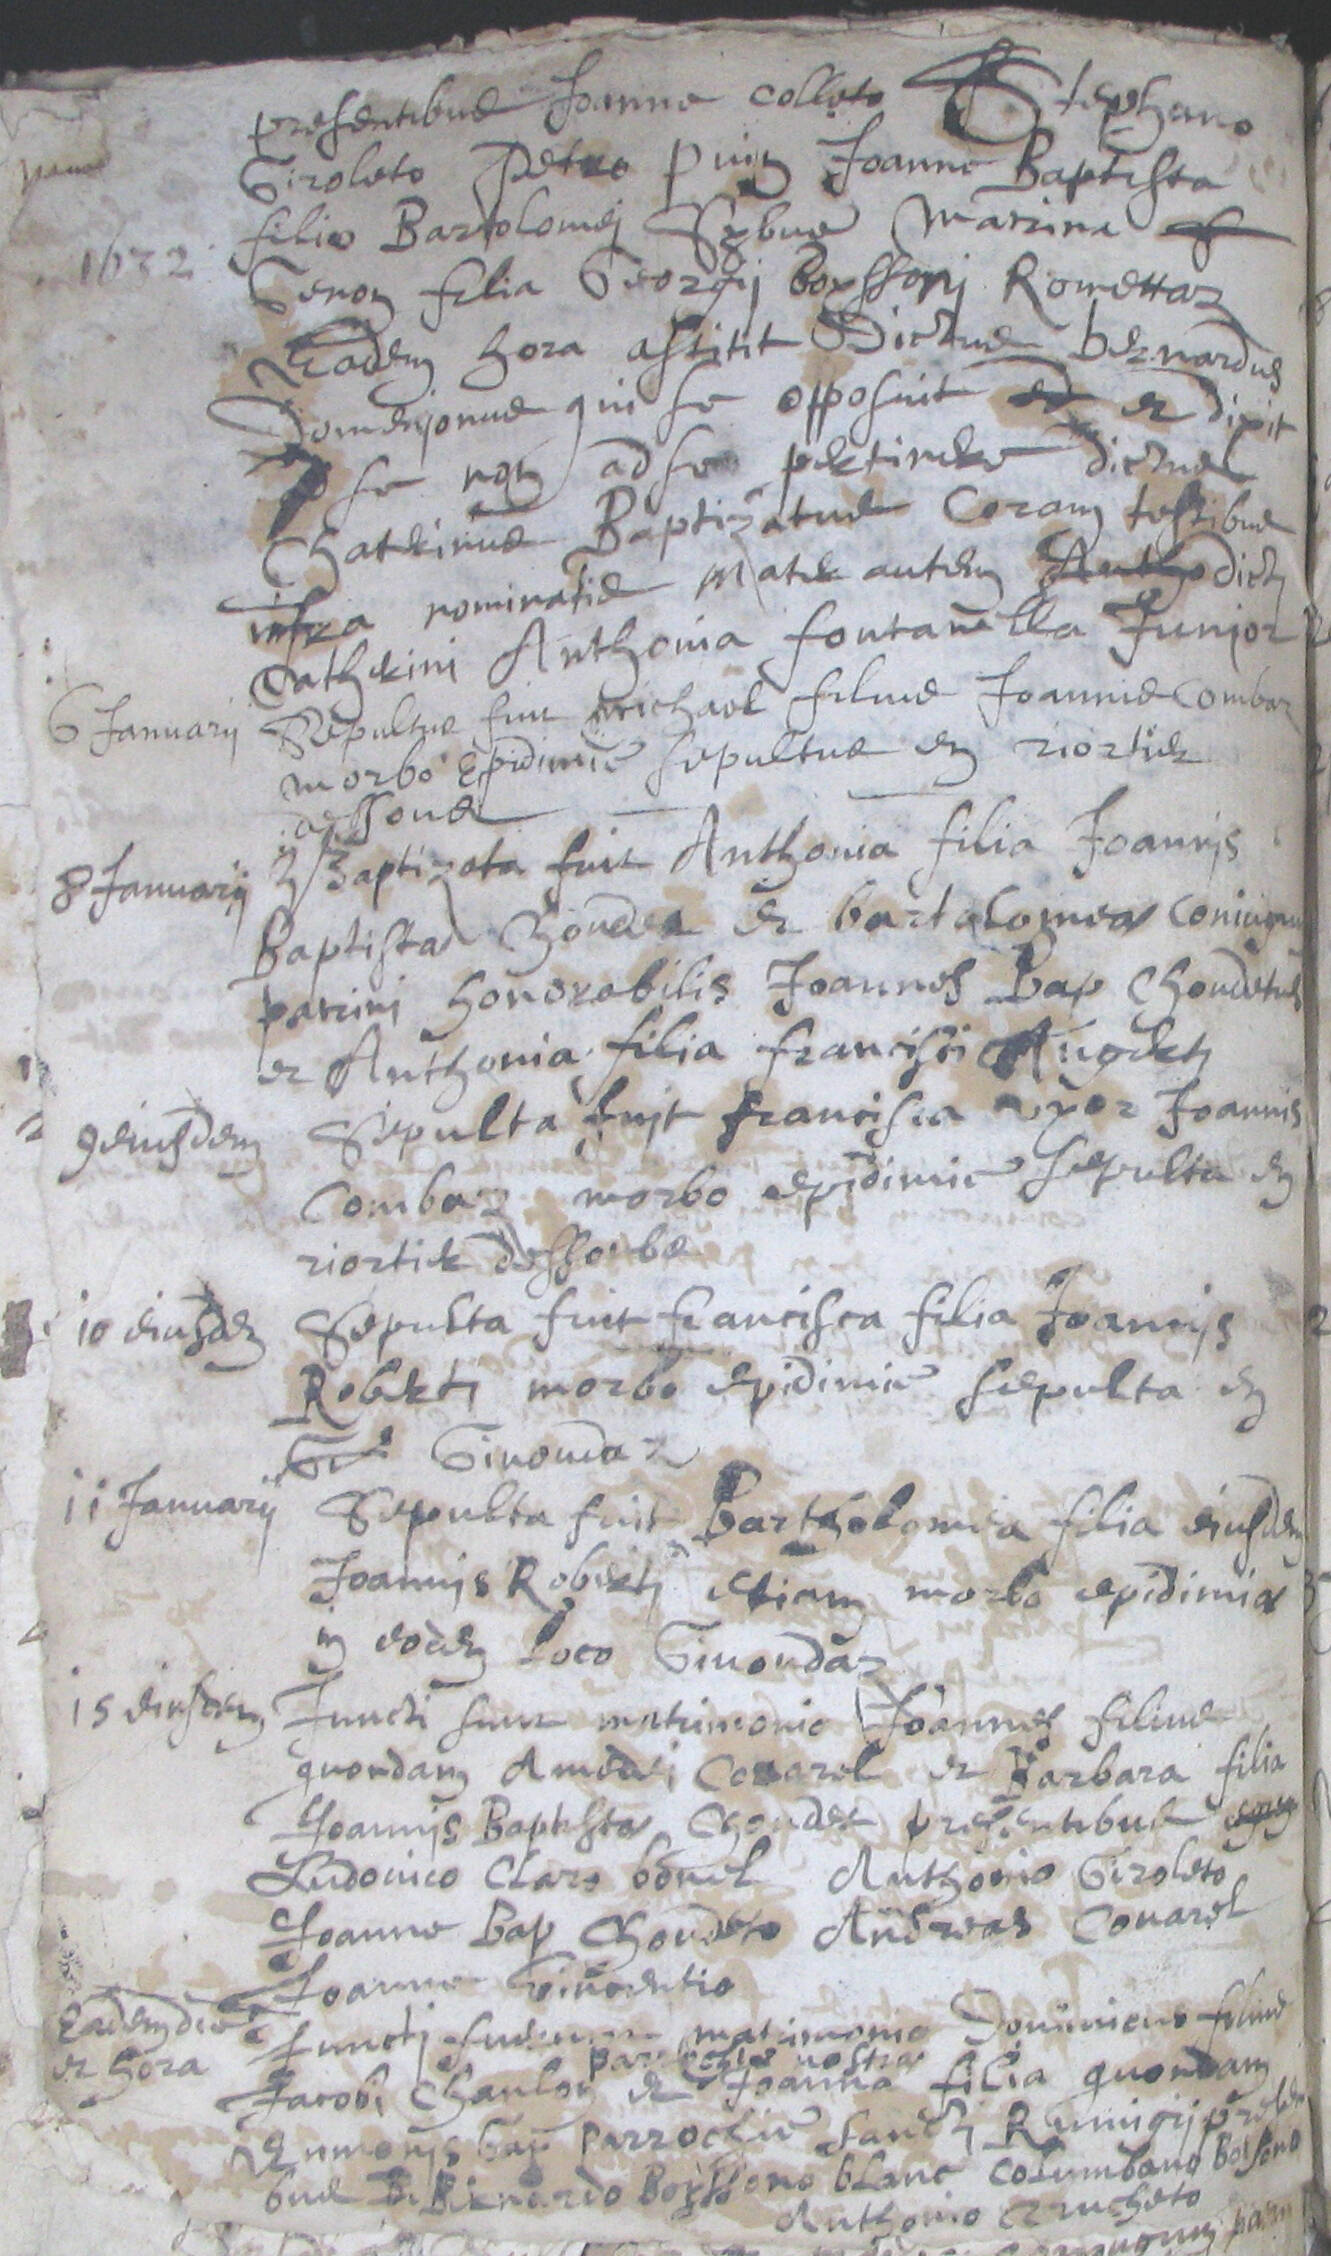 presentibus Joanne colleto Stephano
Giroleto Petro puig Joanne Baptista
filio Bartolomei matrina
1632
filia Georgii boyssonj Romettaz
Eadem hora astitit Dictus bernardus
qui se opposuit et dixit
se non ad se pertinere dictus
Chaterinus Baptizatus Coram testibus
infra nominatis Mater autem dicti
Catherini Anthonia fontanella Junior
6 Januarij Sepultus fuit michael filius Joannis Combaz
morbo Epidimie sepultus en riortier
dessous
8 Januarij Baptizata fuit Anthonia filia Joannis
Baptistae et bartolomea coniugum
patrini honorabilis Joannes Bap Chondetus
et Anthonia filia francisci
9 eiusdem Sepulta fuit francisca uxor Joannis
Combaz morbo epidimie sepulta en
riortier
10 eiusdem Sepulta fuit francisca filia Joannis
Roberti morbo epidimie sepulta en
Givondaz
11 Januarij Sepulta fuit Bartholomea filia eiusdem
Joannis Roberti etiam morbo epidimiae
in eodem loco Givondaz
15 eiusdem Juncti sunt matrimonio Joannes filius
quondam Amedei Covarel et Barbara filia
Joannis Baptistae Chondet presentibus
Ludovico Claro Anthonio Giroleto
Joanne Bap Chondeto Andreas Covarel
Joanne Vincentio
Eadem die et hora
Juncti fuerunt matrimonio Dominicus filius
parrochiae nostrae
Jacobi et Joanna filia quondam
parrochie Sancti Remigij presenti
bus Bernardo Boyssono blanc Columbano Boissono
Anthonio Crucheto